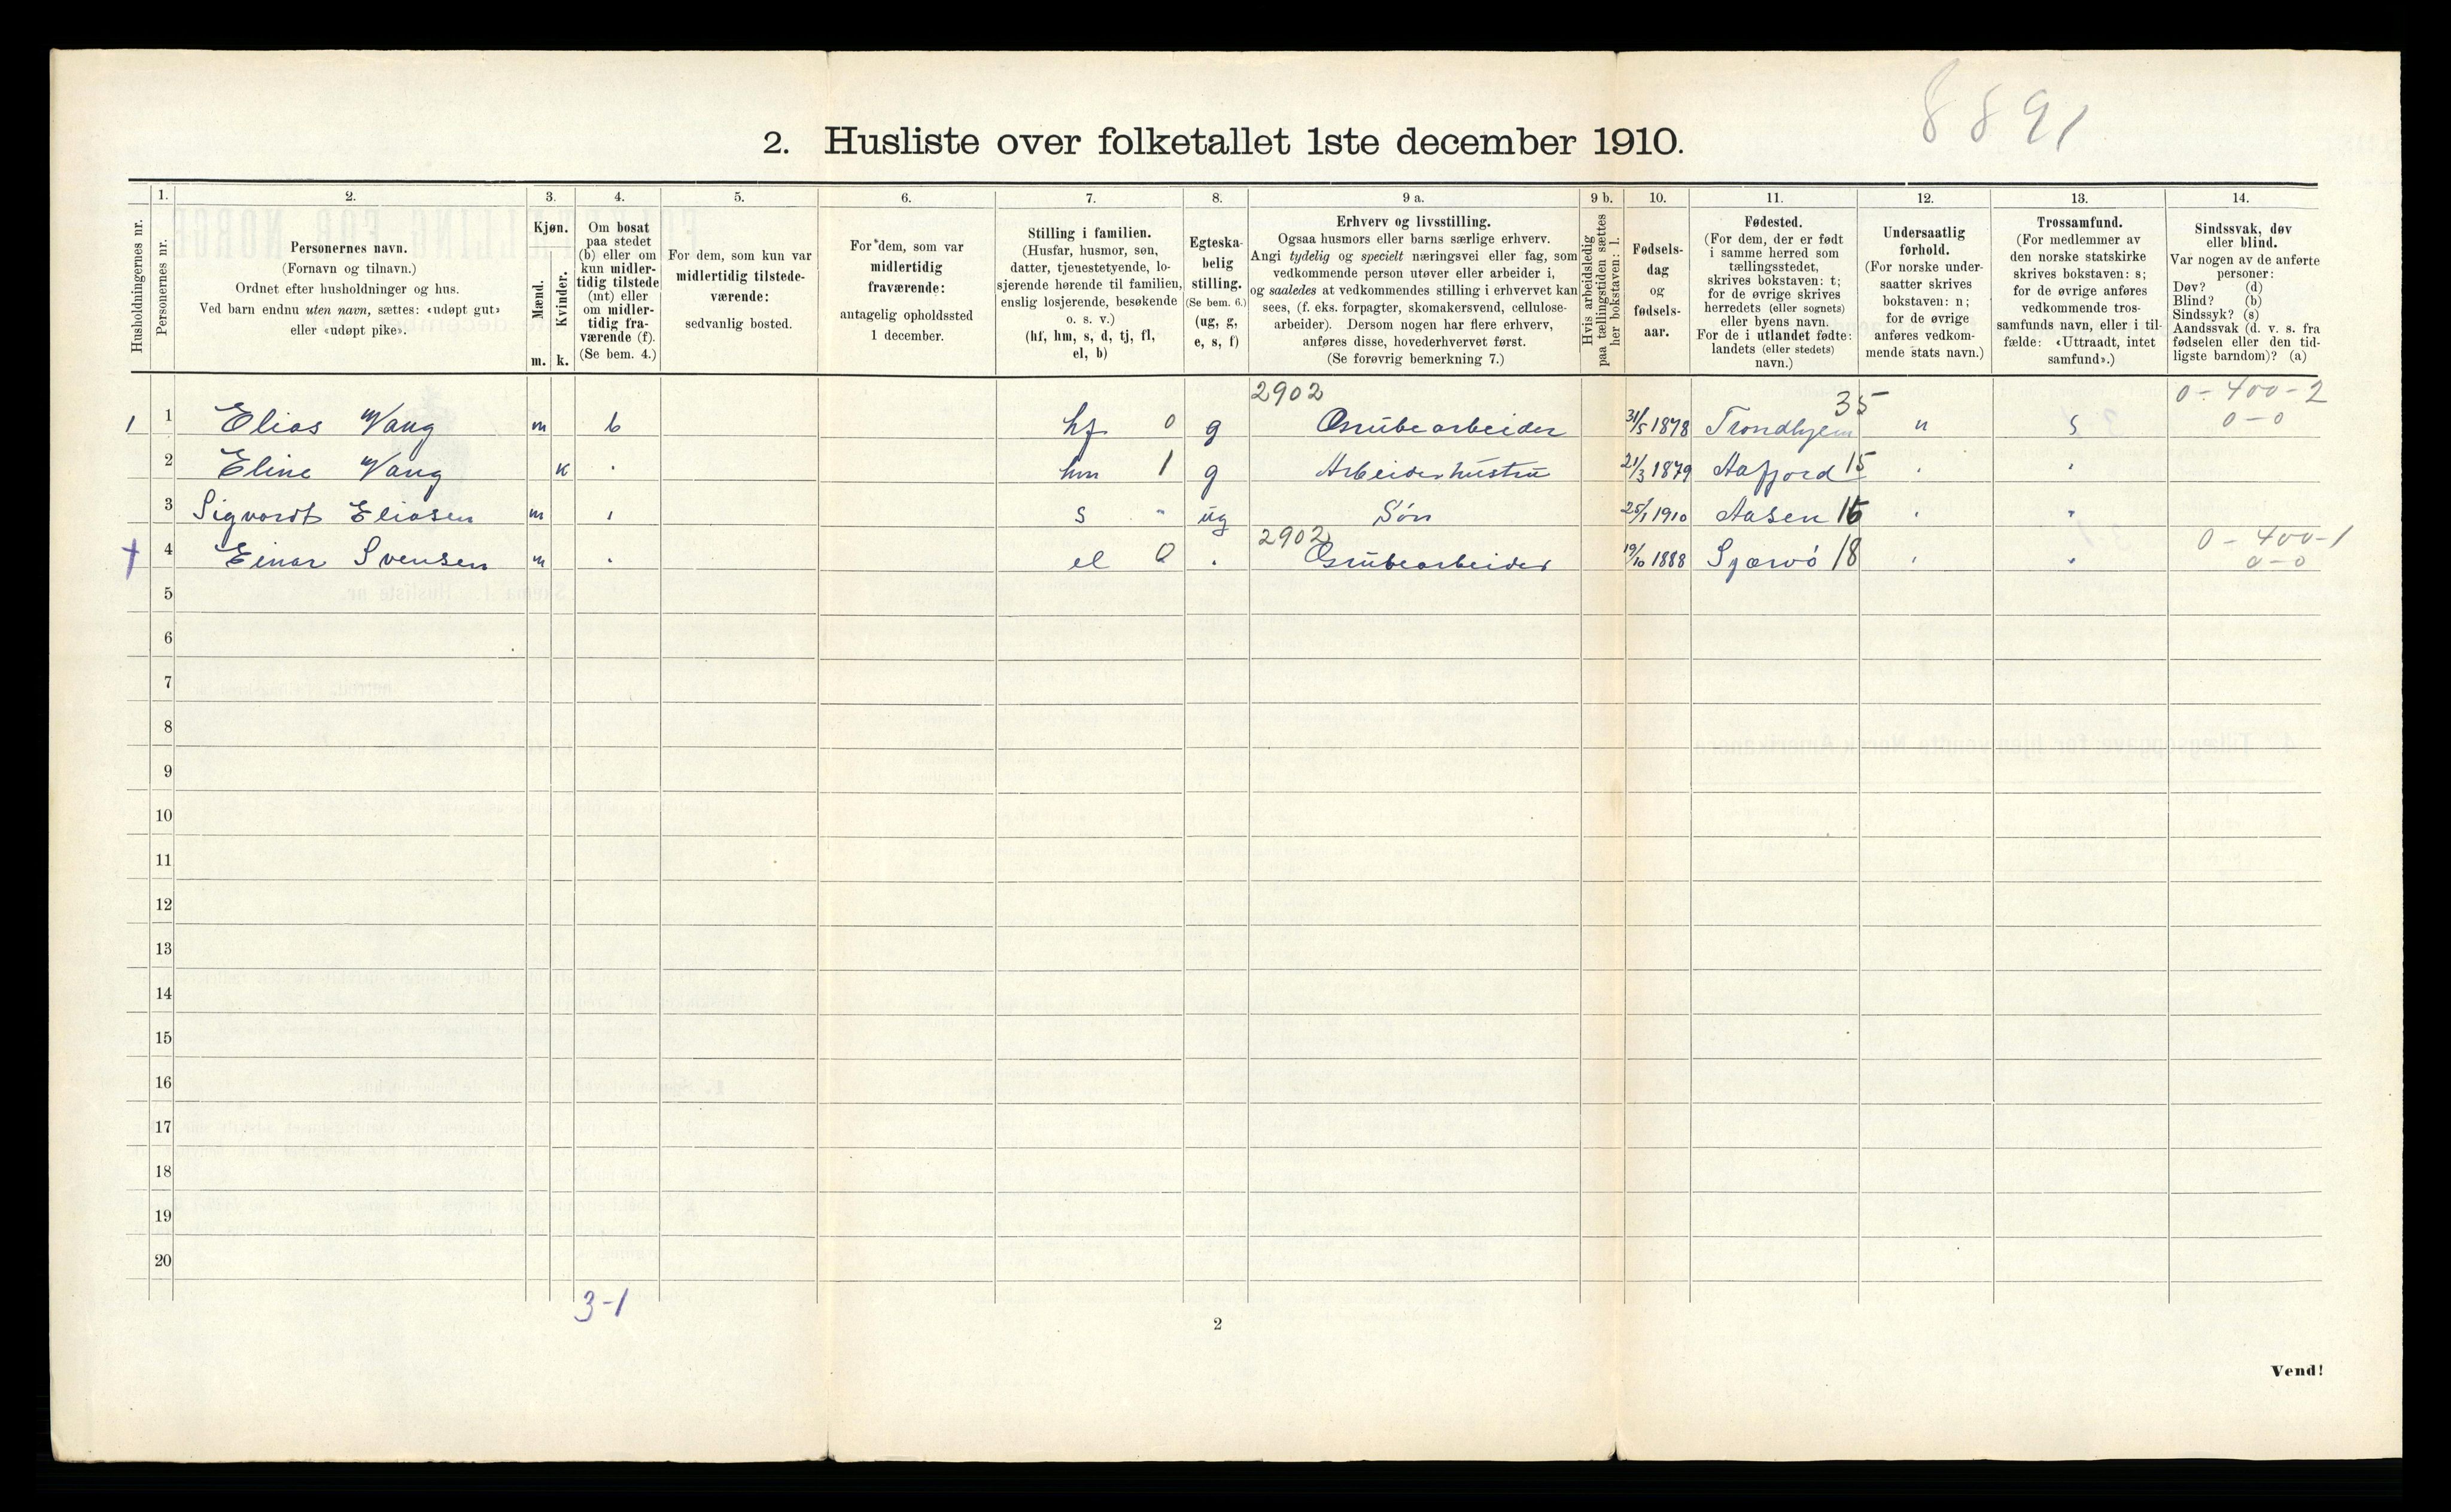 8891
2. Husliste over folketallet 1ste december 1910.
Husholdningernes nr.
1. Personernes nr.
2. Personernes navn. (Fornavn og tilnavn.) Ordnet efter husholdninger og hus. Ved barn endnu uten navn, sættes: «udøpt gut» eller «udøpt pike».
3. Kjøn. Mænd. m. Kvinder. k.
4. Om bosat paa stedet (b) eller om kun midlertidig tilstede (mt) eller om midlertidig fraværende (f). (Se bem. 4.)
5. For dem, som kun var midlertidig tilstedeværende: sedvanlig bosted.
6. For dem, som var midlertidig fraværende: antagelig opholdssted 1 december.
7. Stilling i familien. (Husfar, husmor, søn, datter, tjenestetyende, losjerende hørende til familien, enslig losjerende, besøkende o. s. v.) (hf, hm, s, d, tj, fl, el, b)
8. Egteskabelig stilling. (Se bem. 6.) (ug, g, e, s, f)
9 a. Erhverv og livsstilling. Ogsaa husmors eller barns særlige erhverv. Angi tydelig og specielt næringsvei eller fag, som vedkommende person utøver eller arbeider i, og saaledes at vedkommendes stilling i erhvervet kan sees, (f. eks. forpagter, skomakersvend, cellulosearbeider). Dersom nogen har flere erhverv, anføres disse, hovederhvervet først. (Se forøvrig bemerkning 7.)
9 b. Hvis arbeidsledig paa tællingstiden sættes her bokstaven: l.
10. Fødselsdag og fødselsaar.
11. Fødested. (For dem, der er født i samme herred som tællingsstedet, skrives bokstaven: t; for de øvrige skrives herredets (eller sognets) eller byens navn. For de i utlandet fødte: landets (eller stedets) navn.)
12. Undersaatlig forhold. (For norske undersaatter skrives bokstaven: n; for de øvrige anføres vedkommende stats navn.)
13. Trossamfund. (For medlemmer av den norske statskirke skrives bokstaven: s; for de øvrige anføres vedkommende trossamfunds navn, eller i tilfælde: «Uttraadt, intet samfund».)
14. Sindssvak, døv eller blind. Var nogen av de anførte personer: Døv? (d) Blind? (b) Sindssyk? (s) Aandssvak (d. v. s. fra fødselen eller den tidligste barndom)? (a)
2902 35 0-400-2
1 1 Elias Vang m b hf 0 g Grubearbeider 31/5 1878 Trondhjem n s 0-0
2 Eline Vang k " hm 1 g Arbeiderhustru 21/3 1879 Aafjord 15 " "
3 Sigvardt Eliasen m " s " ug Søn 25/1 1910 Aasen 16 " "
2902 0-400-1
4 Einar Svensen m " el 0 " Grubearbeider 19/10 1888 Sjærvö 18 " " 0-0
5
6
7
8
9
10
11
12
13
14
15
16
17
18
19
20
3-1
2
Vend!